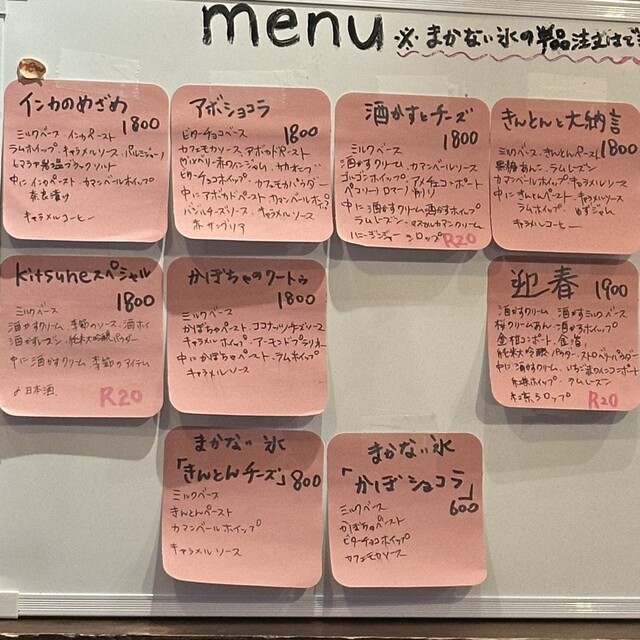 menu
※まかない氷の単品注文はで
インカのめざめ
1800
ミルクベース・インカペースト
ラムホイップ・キャラメルソース・パルミジャーノ
ヒマラヤ岩塩ブラックソルト
中にインカペースト・カマンベールホイップ
奈良漬け
キャラメルコーヒー
アボショコラ
1800
ビターチョコベース
カフェモカソース・アボカドペースト
ビターチョコホイップ・カフェモカパウダー
中にアボカドペースト カマンベールホイップ
キャラメルソース
赤サングリア
酒かすとチーズ
1800
ミルクベース
酒かすクリーム・カマンベールソース
ゴルゴンホイップ・アメチェコンポート
ペコリーノロマーノ 削り
中に酒かすクリーム酒かすホイップ
ラムレーズン・マスカルカマンクリーム
ハニージンジャーシロップ R20
きんとんと大納言
1800
ミルクベース・きんとんペースト
黒糖あんこ・ラムレーズン
カマンベールホイップ キャラメルソース
中にきんとんペースト・キャラメルソース
ラムホイップ・ゆずジャム
キャラメルコーヒー
kitsuneスペシャル
1800
ミルクベース
酒かすクリーム・季節のソース・酒ホイ
酒かすレーズン・純米大吟醸パウダー
中に酒かすクリーム 季節のアイテム
♪日本酒 R20
かぼちゃのクートゥ
1800
ミルクベース
かぼちゃペースト・ココナッツチーズソース
キャラメルホイップ・アーモンドプラリネ
中にかぼちゃペースト・ラムホイップ
キャラメルソース
迎春 1900
酒かすクリーム 酒かすミルクベース
桜クリームあん・酒かすホイップ
金柑コンポート・金箔
純米大吟醸パウダー・ストロベリーパウダー
中に酒かすクリーム・いちご
紅茶ホイップ・ラムレーズン
紅茶シロップ R20
まかない氷
「きんとんチーズ」800
ミルクベース
きんとんペースト
カマンベールホイップ
キャラメルソース
まかない氷
「かぼショコラ」
600
ミルクベース
かぼちゃペースト
ビターチョコホイップ
カフェモカソース